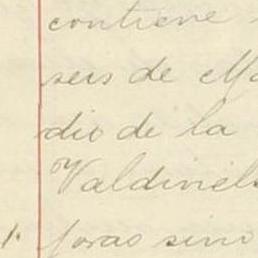 contiene
seis de Ma
dio de la
Valdiniels
1. foras sino